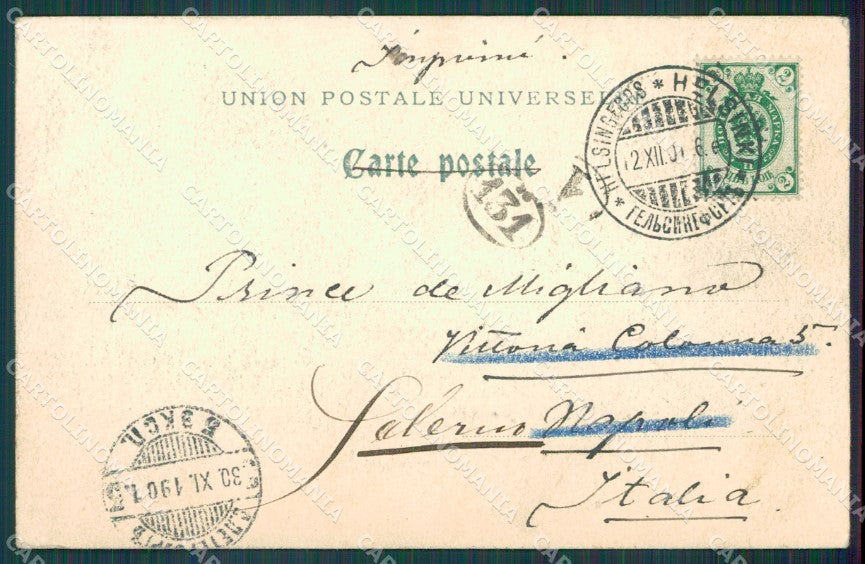 Imprimé.
UNION POSTALE UNIVERSEL
Carte postale
HELSINGFORS * HELSINKI * ГЕЛЬСИНГФОРСЪ *
2.XII.01
131
Prince de Migliano
Vittoria Colonna 5.
Salerno Napoli
Italia
8 ЭКСП.
30.XI.1901
CARTOLINOMANIA